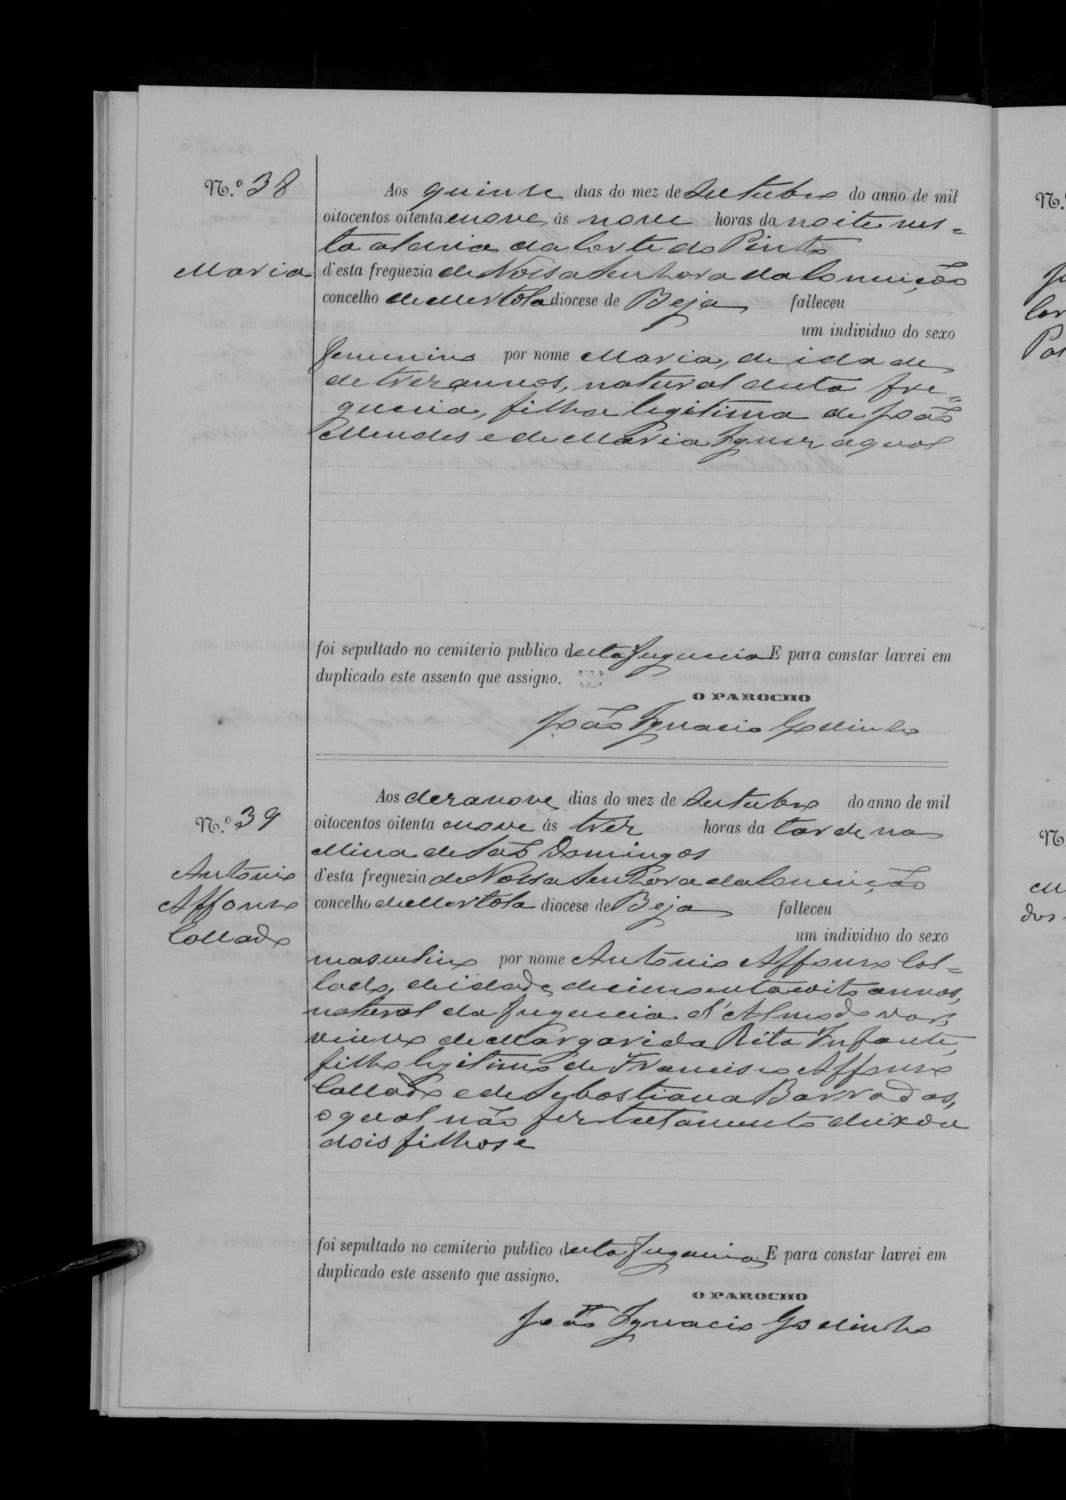 N.º 38
Maria
Aos quinze dias do mez de Outubro do anno de mil
oitocentos oitenta e nove, ás nove horas da noite nes=
ta aldeia da Corte do Pinto
d'esta freguezia de Nossa Senhora da Conceição
concelho de Mertola diocese de Beja falleceu
um individuo do sexo
femenino por nome Maria, de idade
de trez annos, natural desta fre=
guezia, filha legitima de João
Mendes e de Maria Ignez a qual
foi sepultado no cemiterio publico desta freguezia E para constar lavrei em
duplicado este assento que assigno.
O PAROCHO
João Ignacio Godinho
N.º 39
Antonio
Affonso
Collado
Aos dezanove dias do mez de Outubro do anno de mil
oitocentos oitenta e nove ás trez horas da tarde na
Mina de São Domingos
d'esta freguezia de Nossa Senhora da Conceição
concelho de Mertola diocese de Beja falleceu
um individuo do sexo
masculino por nome Antonio Affonso Col=
lado, de idade, de cincoenta e oito annos,
natural da freguezia d'Almodovar,
viuvo de Margarida Rita Infante,
filho legitimo de Francisco Affonso
Collado e de Sebastiana Barradas,
o qual não fez testamento deixou
dois filhos e
foi sepultado no cemiterio publico desta freguezia E para constar lavrei em
duplicado este assento que assigno.
O PAROCHO
João Ignacio Godinho